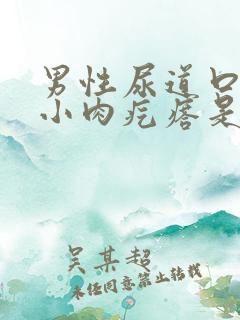 男性尿道口
小肉疙瘩是
吴某超
未经同意禁止转载